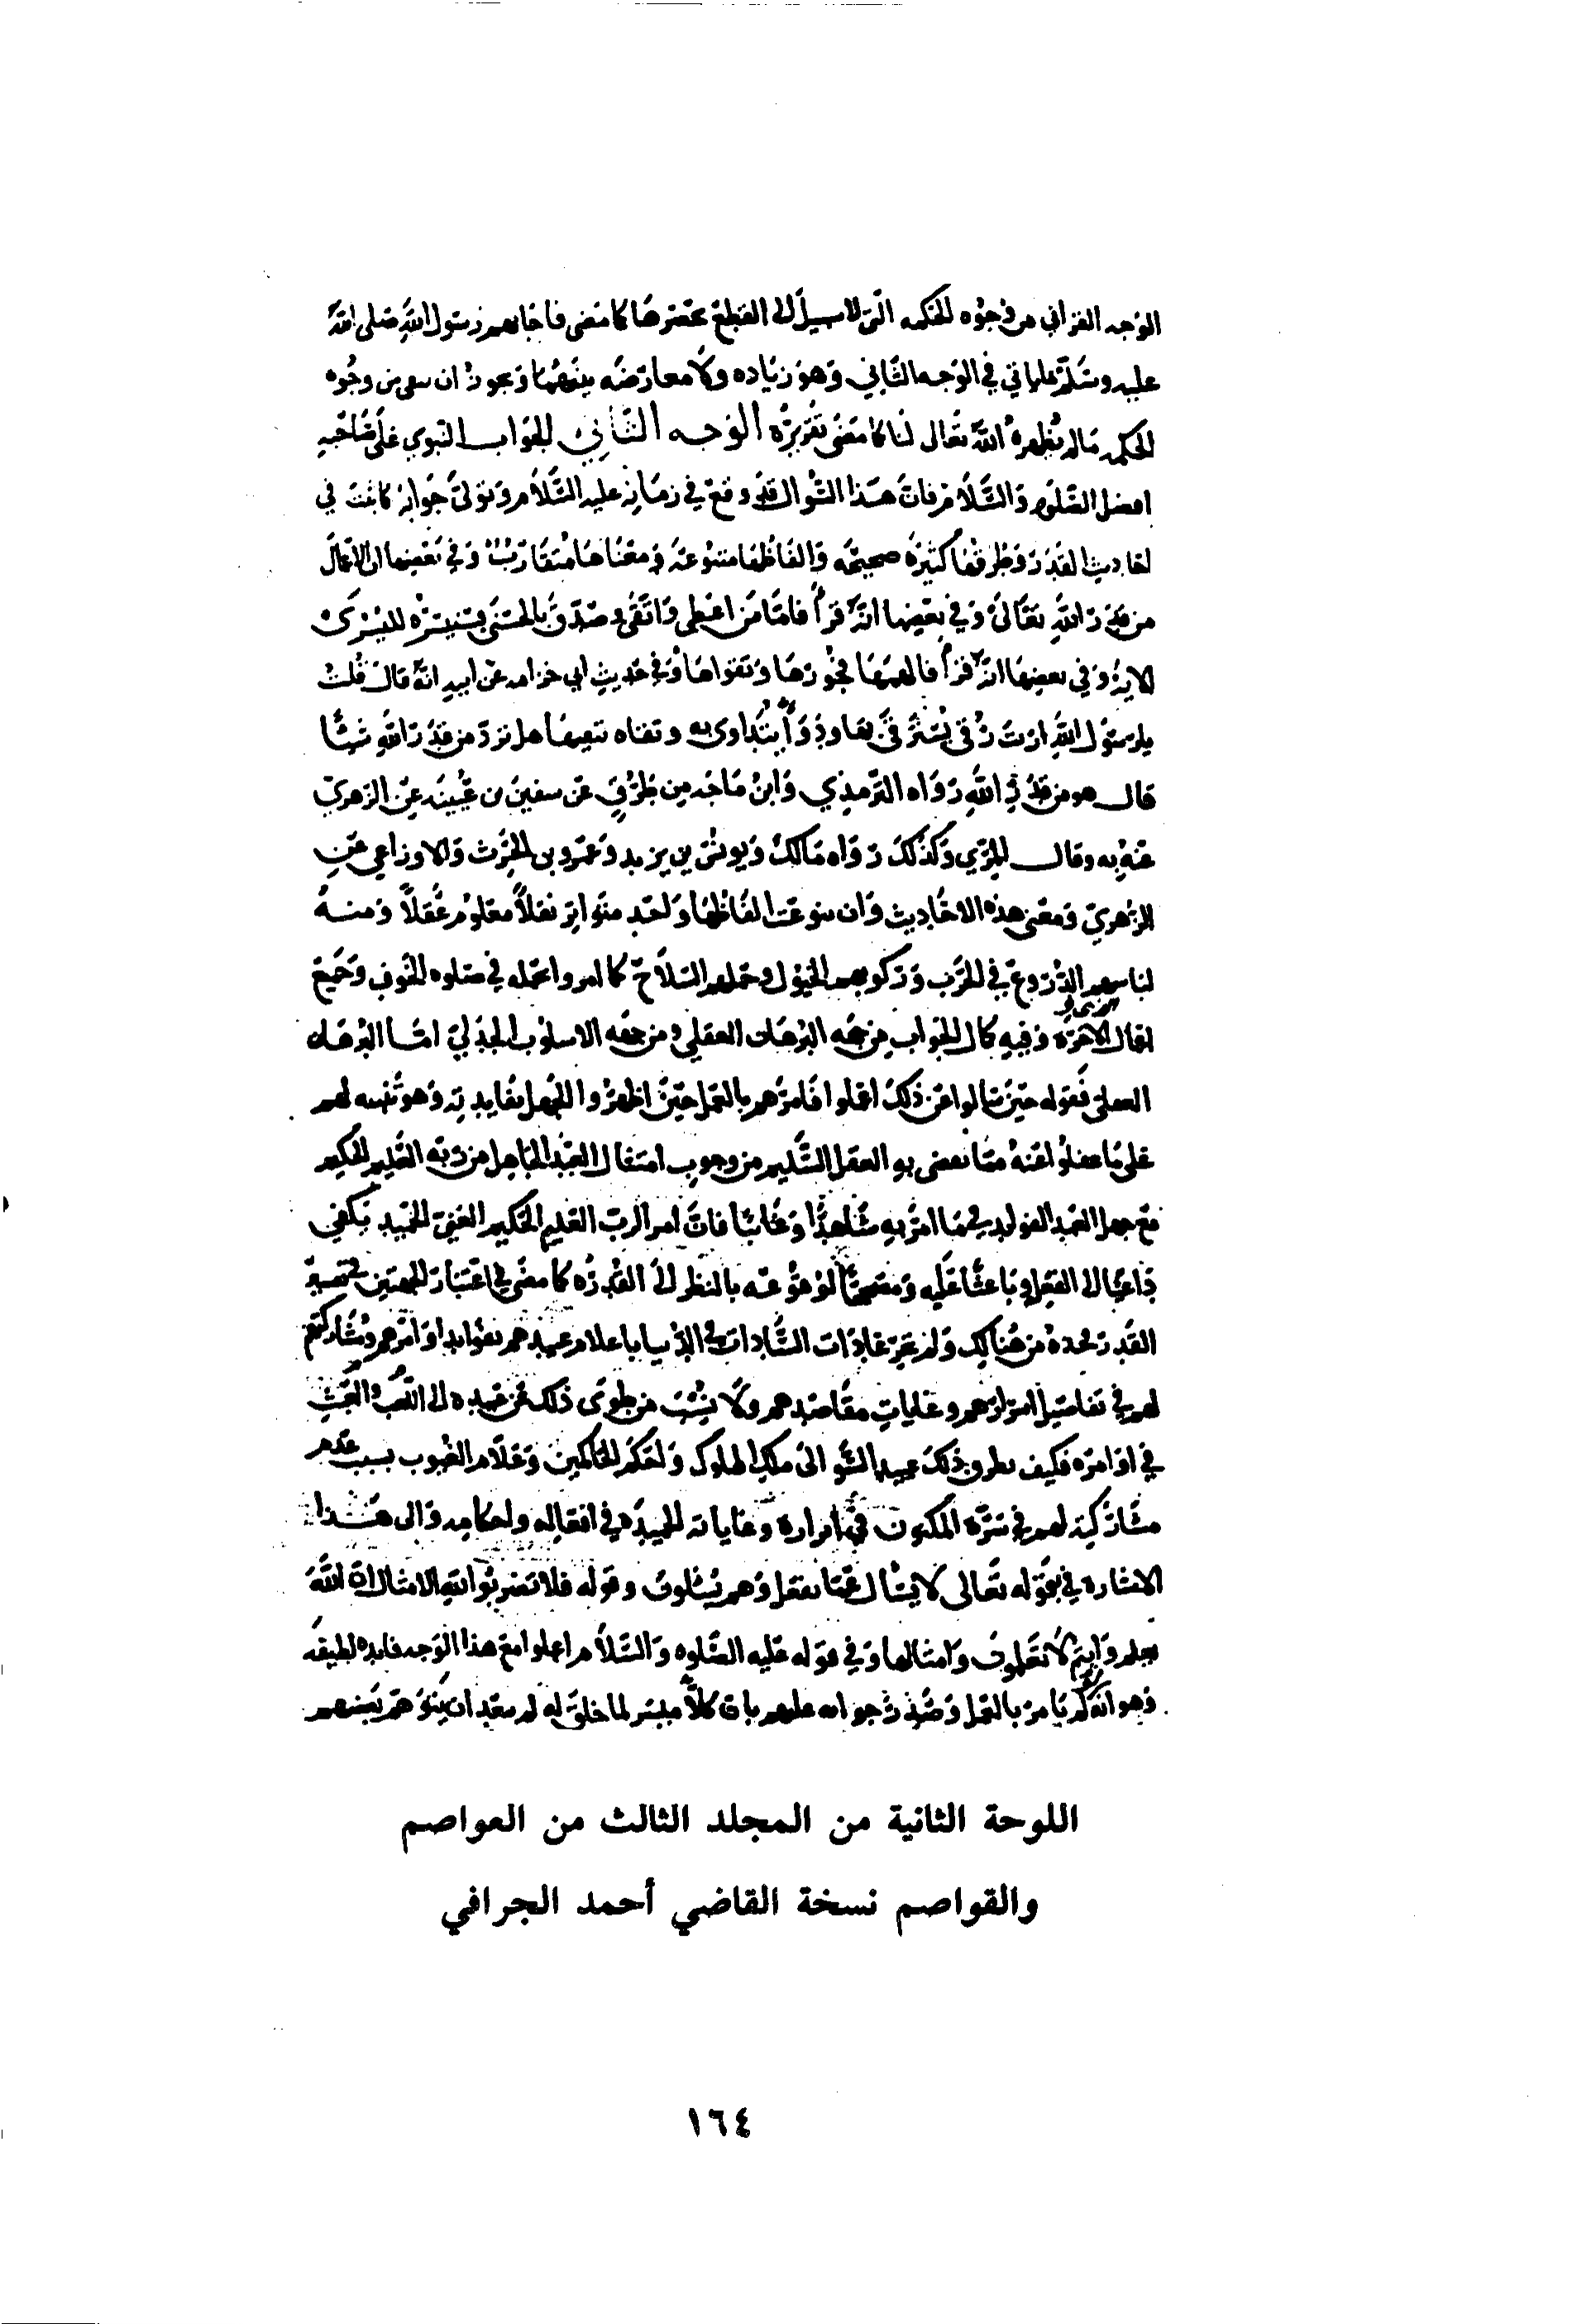 الوجه القراني من وجوه الحكمه التي لا سبيل الى القطع بحصرها كما مضى فاجابهم رسول الله صلى الله
عليه وسلم بما ياتي في الوجه الثاني وهو زياده ولا معارضه بينهما ويجوز ان يبقى من وجوه
الحكمه ما لم يظهره الله تعالى لنا كما مضى تقريره الوجه الثاني الجواب النبوي على صاحبه
افضل الصلوه والسلام فان هذا السوال قد وقع في زمانه عليه السلام وتولى جوابه كما ثبت في
احاديث القدر وطرقها كثيرة صحيحه والفاظها متنوعة ومعناها متقارب وفي بعضها ان الاعمال
من قدر الله تعالى وفي بعضها انه قرأ فاما من اعطى واتقى وصدق بالحسنى فسنيسره لليسرى
الاية وفي بعضها انه قرأ فالهمها فجورها وتقواها وفي حديث ابي خزامه عن ابيه انه قال قلت
يا رسول الله ارايت رقى نسترقي بها ودواً نتداوى به وتقاه نتقيها هل ترد من قدر الله شيئا
قال هو من قدر الله رواه الترمذي وابن ماجه من طرق عن سفين بن عيينه عن الزهري
عنه به وقال المزي وكذلك رواه مالك ويونس بن يزيد وعمرو بن الحرث والاوزاعي عن
الزهري ومعنى هذه الاحاديث وان تنوعت الفاظها واحد متواتر نقلاً معلوم عقلاً ومنه
لباسهم الدروع في الحرب وركوبهم الخيول وحملهم السلاح كما امروا بحمله في صلوه الخوف وجميع
افعال الاخرة وفيه كمال الجواب من جهه البرهان العقلي ومن جهه الاسلوب الجدلي اما البرهان
العقلي فقوله حين سالوا عن ذلك اعملوا فامرهم بالعمل حين اظهروا الجهل بفايدته وهو تنبيه لهم
على ما غفلوا عنه مما يقضي به العقل السليم من وجوب امتثال العبد الجاهل من ربه العليم الحكيم
مع جهل العبد الفوايد فيما امر به شاهدًا وغائبا فان امر الرب العليم الحكيم الغني الحميد يكفي
داعيا الى الفعل وباعثا عليه ومقبحا لوقوعه بالنظر الى القدره كما مضى في اعتبار الجهتين
القدر وحده من هنالك ولم تجر عادات السادات في الدنيا باعلام عبيدهم بفوايد اوامرهم ومشاركتهم
لهم في تفاصيل اسرارهم وغايات مقاصدهم ولا ينسب من طوى ذلك عن عبيده الى اللعب والعبث
في اوامره فكيف يطرق ذلك عبيد السو الى ملك الملوك واحكم الحاكمين وعلام الغيوب بسبب عدم
مشاركته لهم في سره المكنون في اسراره وغاياته الحميدة في افعاله واحكامه والى هذا
الاشارة في قوله تعالى لا يسال عما يفعل وهم يسئلون وقوله فلا تضربوا لله الامثال ان الله
يعلم وانتم لا تعلمون وامثالها وفي قوله عليه الصلوه والسلام اعملوا مع هذا الوجه فايده لطيفه
وهو انه لم يامر بالعمل وصدر جوابه عليهم بان كلاً ميسر لما خلق له لم يبعد ان يتوهم بعضهم
اللوحة الثانية من المجلد الثالث من العواصم
والقواصم نسخة القاضي أحمد الجرافي
١٦٤